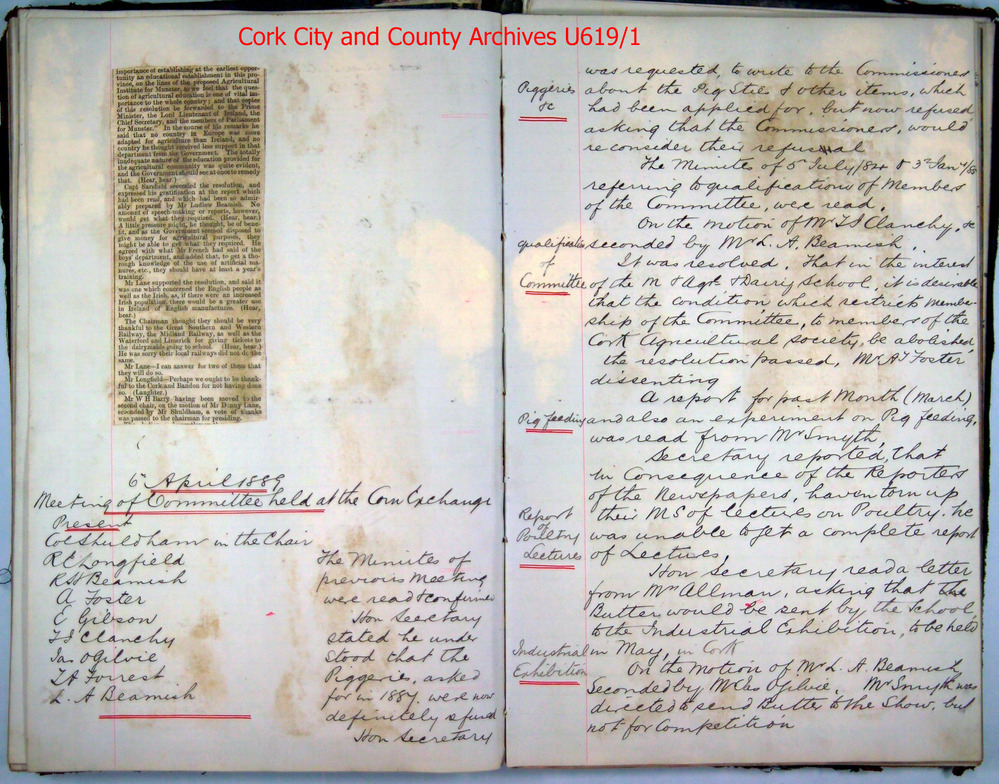 Cork City and County Archives U619/1
importance of establishing at the earliest oppor-
tunity an educational establishment in this pro-
vince, on the lines of the proposed Agricultural
Institute for Munster, as we feel that the ques-
tion of agricultural education is one of vital im-
portance to the whole country; and that copies
of this resolution be forwarded to the Prime
Minister, the Lord Lieutenant of Ireland, the
Chief Secretary, and the members of Parliament
for Munster." In the course of his remarks he
said that no country in Europe was more
adapted for agriculture than Ireland, and no
country he thought received less support in that
department from the Government. The totally
inadequate nature of the education provided for
the agricultural community was quite evident,
and the Government should see at once to remedy
that. (Hear, hear.)
Capt Sarsfield seconded the resolution, and
expressed his gratification at the report which
had been read, and which had been so admir-
ably prepared by Mr Ludlow Beamish. No
amount of speech-making or reports, however,
would get what they required. (Hear, hear.)
A little pressure might, he thought, be of bene-
fit, and as the Government seemed disposed to
give money for agricultural purposes, they
might be able to get what they required. He
agreed with what Mr French had said of the
boys' department, and added that, to get a tho-
rough knowledge of the use of artificial ma-
nures, etc., they should have at least a year's
training.
Mr Lane supported the resolution, and said it
was one which concerned the English people as
well as the Irish, as, if there were an increased
Irish population, there would be a greater use
in Ireland of English manufactures. (Hear,
hear.)
The Chairman thought they should be very
thankful to the Great Southern and Western
Railway, the Midland Railway, as well as the
Waterford and Limerick for giving tickets to
the dairymaids going to school. (Hear, hear.)
He was sorry their local railways did not do the
same.
Mr Lane—I can answer for two of them that
they will do so.
Mr Longfield—Perhaps we ought to be thank-
ful to the Cork and Bandon for not having done
so. (Laughter.)
Mr W H Barry having been moved to the
second chair, on the motion of Mr Denny Lane,
seconded by Mr Shuldham, a vote of thanks
was passed to the chairman for presiding.
6th April 1889
Meeting of Committee held at the Corn Exchange
Present
Col Shuldham in the Chair
R E Longfield
R H Beamish
A Foster
E Gibson
T J Clanchy
Jas Ogilvie
T A Forrest
L. A Beamish
The Minutes of
previous Meeting
were read & confirmed
Hon Secretary
stated he under
stood that the
Piggerie, asked
for in 1887, were now
definitely refused
Hon Secretary
was requested, to write to the Commissioners
Piggeries
&c
about the Pig Stie's & other items, which
had been applied for, but now refused
asking that the Commissioners, would
reconsider their refusal
The Minutes of 5th July/84 & 3rd Jany/85
referring to qualifications of Members
of the Committee, were read,
On the motion of Mr T J Clanchy, &c
seconded by Mr L. A. Beamish.
qualification
of
Committee
It was resolved, That in the interest
of the M & Agl & Dairy School, it is desirable
that the condition which restricts member-
ship of the Committee, to members of the
Cork Agricultural Society, be abolished
the resolution passed, Mr A Foster
dissenting
A report for past Month (March)
Pig feeding
and also an experiment on Pig feeding,
was read from Mr Smyth,
Secretary reported, that
in Consequence of the Reporters
of the Newspapers, haven torn up
Report
of
Poultry
Lectures
their MS of lectures on Poultry, he
was unable to get a complete report
of Lectures,
Hon Secretary read a letter
from Mrs Allman, asking that the
Butter would be sent by the School
to the Industrial Exhibition, to be held
Industrial
Exhibition
in May, in Cork
On the Motion of Mr L. A. Beamish
Seconded by Mr Jas Ogilvie, Mr Smyth was
directed to send Butter to the Show, but
not for Competition